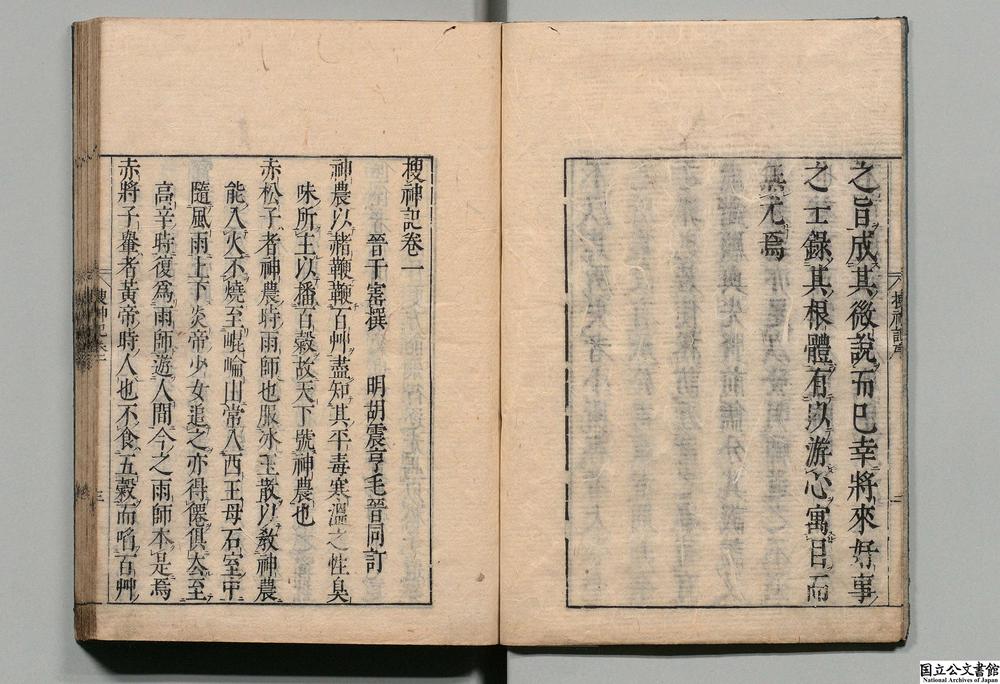 之旨成其微說而已幸將來好事
之士錄其根體有以游心寓目而
無尤焉
搜神記序
二
搜神記卷一
晉干寳撰　明胡震亨毛晉同訂
神農以赭鞭鞭百艸盡知其平毒寒溫之性臭
味所主以播百穀故天下號神農也
赤松子者神農時雨師也服冰玉散以敎神農
能入火不燒至崐崘山常入西王母石室中
隨風雨上下炎帝少女追之亦得僊俱去至
高辛時復爲雨師遊人間今之雨師本是焉
赤將子轝者黃帝時人也不食五穀而啗百艸
搜神記卷一
三
国立公文書館
National Archives of Japan